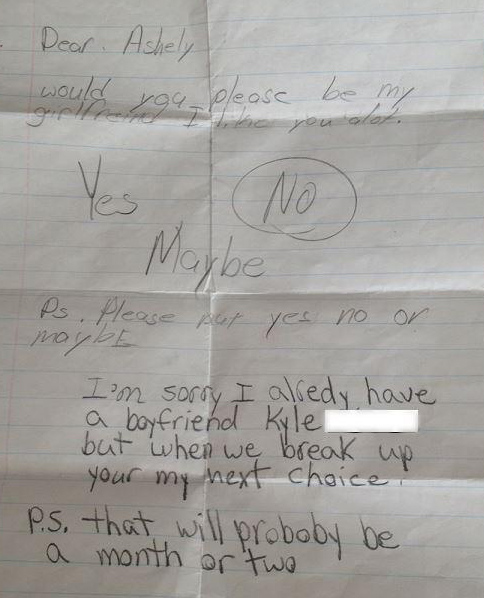 Dear. Ashely
would you please be my
girlfreind I like you alot.
Yes
NO
Maybe
Ps. Please put yes no or
maybE
I'm sorry I alredy have
a boyfriend Kyle
but when we break up
your my next choice.
P.S. that will proboby be
a month or two